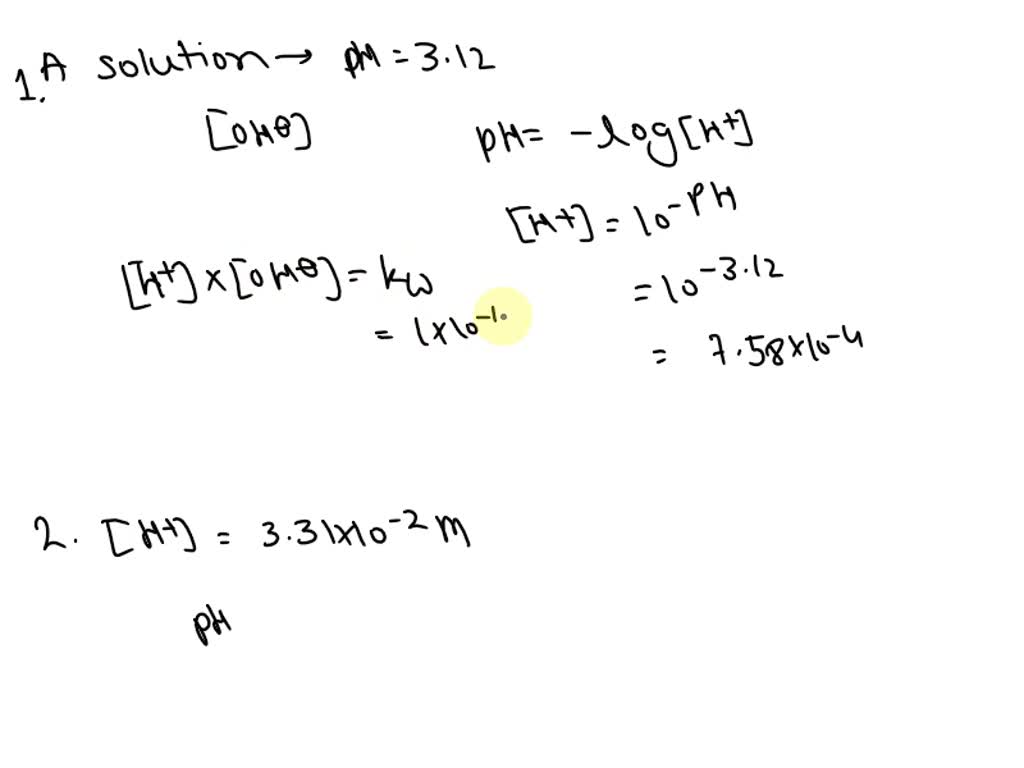 1. A solution → pH = 3.12
[OH⊖]
pH = -log[H+]
[H+] = 10-pH
[H+] × [OH⊖] = kw
= 10-3.12
= 1×10-1.
= 7.58×10-4
2. [H+] = 3.31×10-2 M
pH